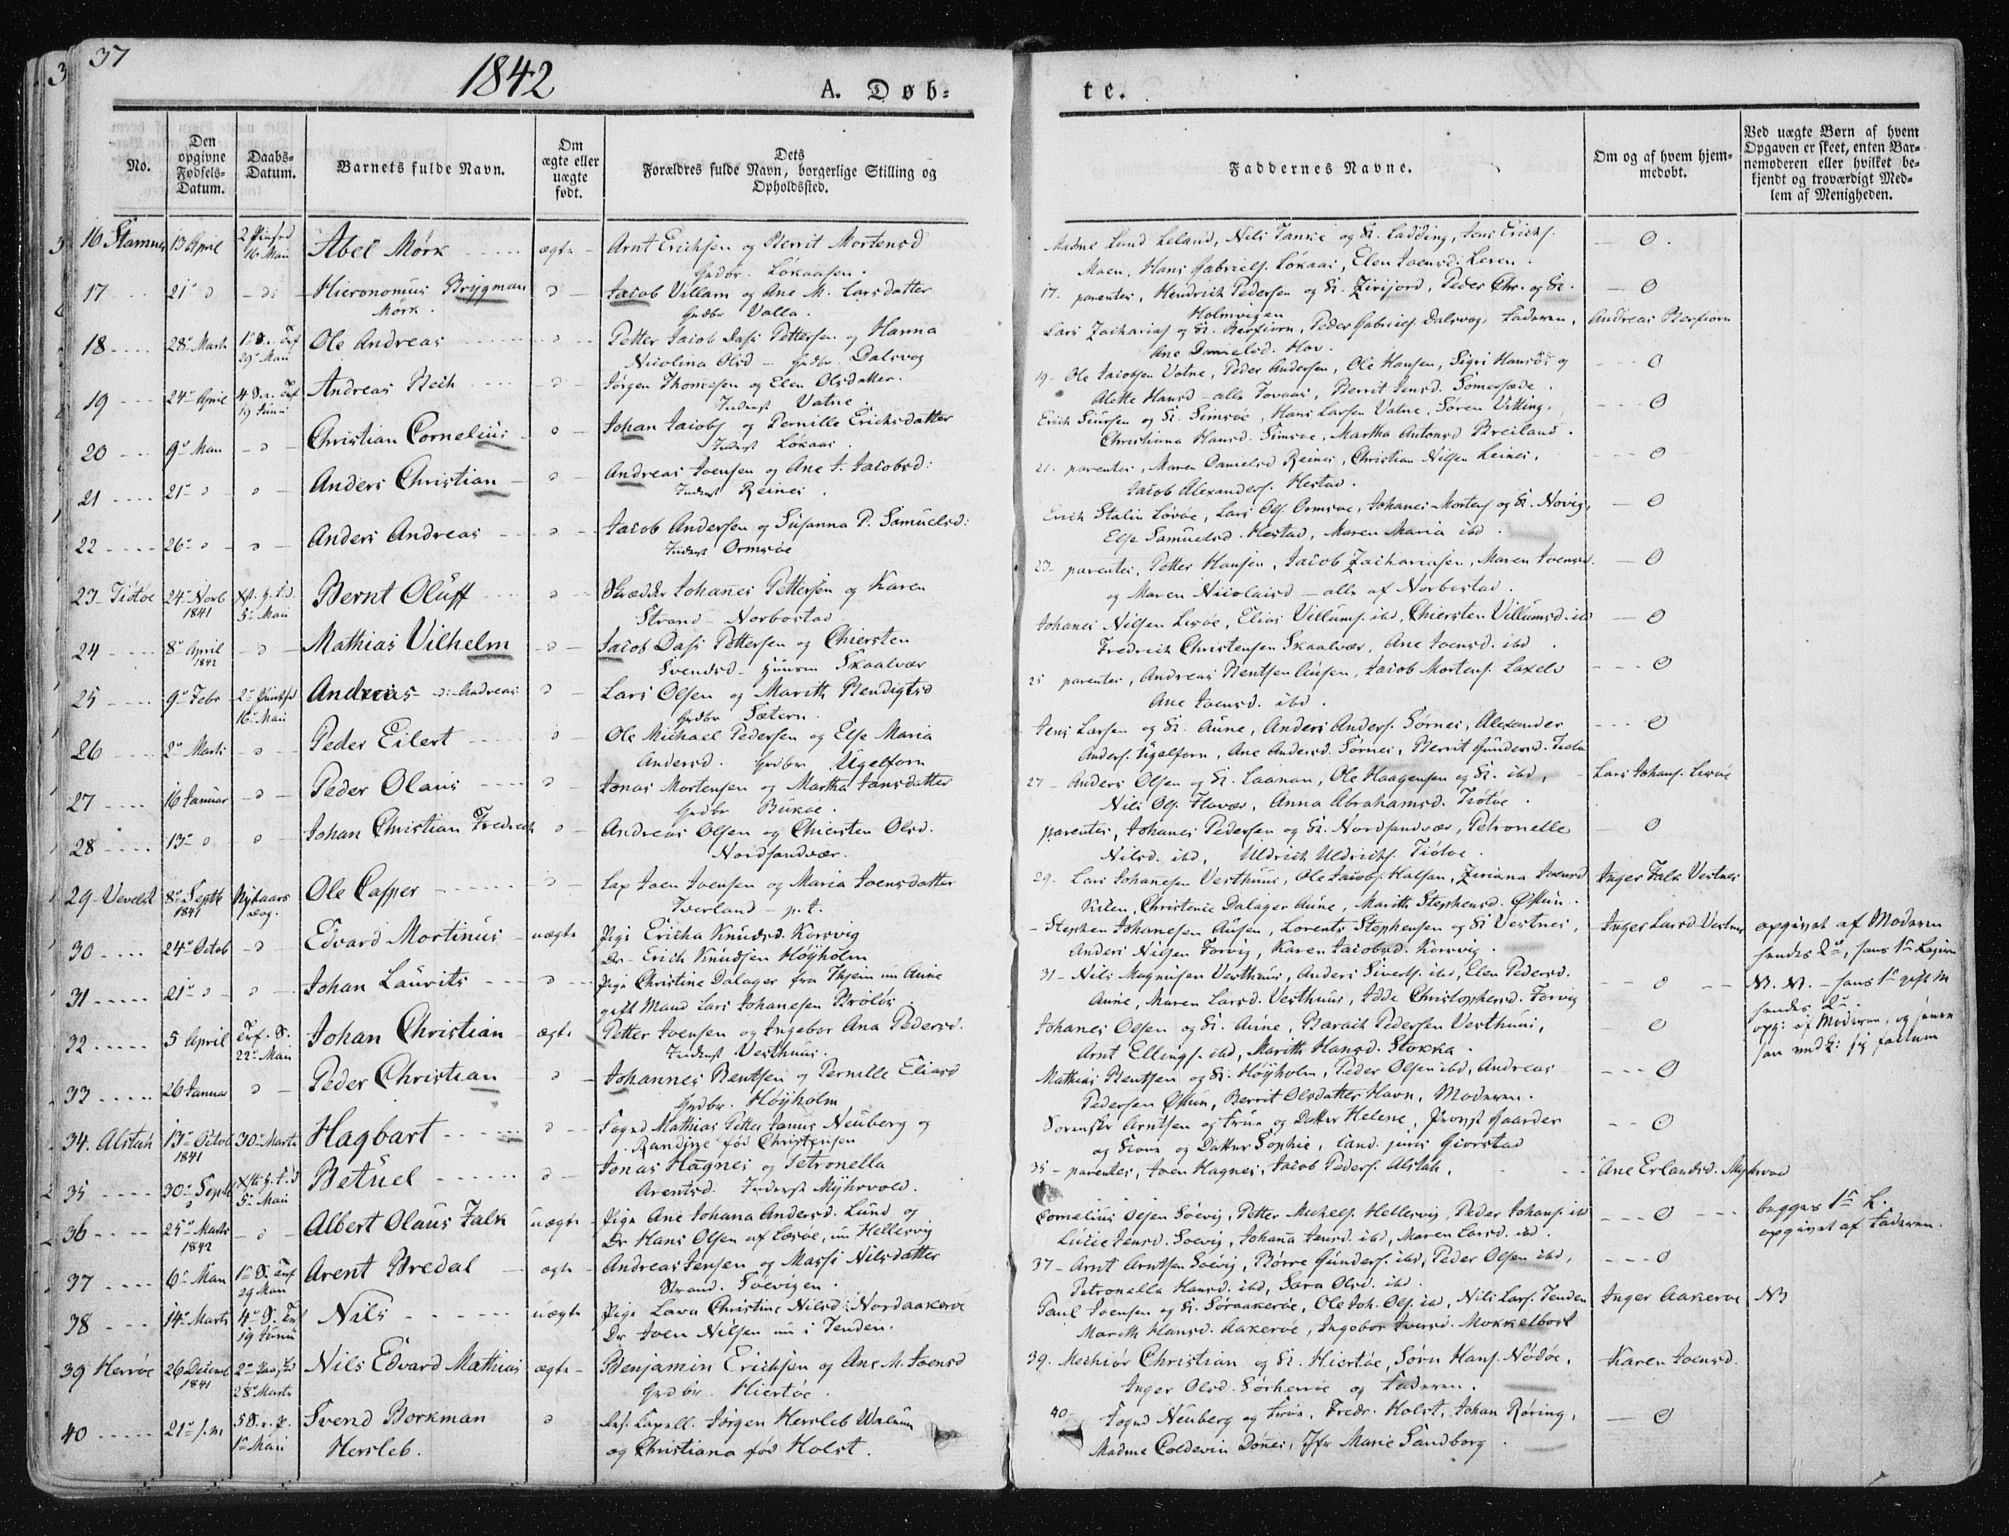 37
1842
A. Døb-
te.
No.
Den opgivne Fødsels-Datum.
Daabs-Datum.
Barnets fulde Navn.
Om ægte eller uægte født.
Dets Forældres fulde Navn, borgerlige Stilling og Opholdssted.
Faddernes Navne.
Om og af hvem hjem-medøbt.
Ved uægte Børn af hvem Opgaven er skeet, enten Bar-nemoderen eller hvilket be-kjendt og troværdigt Med-lem af Menigheden.
16 Stamnes 13 April 16 Mai Abel Mørk ægte Arnt Erichsen og Berrit Mortensd
Grdbr. Løkaasen.
Madme Lund Leland, Nils Tanke og Ladding, Jens Erichs.
Moen, Hans Gabriels. Løkaas, Elen Joensd. Leren. 0
17 21 Hieronomus Brygman
Mørk.
Jacob Villam og Ane M. Larsdatter
Grdbr Valla.
17. parentes, Hendrich Pedersen og Zirisjord, Peder Chr. og
Holmvigen 0
18 28 Marts 29 Mai Ole Andreas Petter Jacob Dass Pettersen og Hanna
Nicolina Olsd - Grdbr Dalsvog
Lars Zacharias og Berfiorn, Peder Gabriels. Dalsvog, Faderen,
Ane Danielsd. Hov. Andreas Berfiorn
19 24 April 19 Juni Andreas Reih Jørgen Thomesen og Elen Olsdatter.
Inderst Vatne.
19 - Ole Jacobsen Vatne, Peder Andersen, Ole Hansen, Sigri Hansd og
Alette Hansd - alle Tovaas, Berrit Jensd. Sømersæde. 0
20 9 Mai Christian Cornelius Johan Jacobs og Pernille Erichsdatter
Inderst Løkaas.
Erich Siursen og Simsøe, Hans Larsen Vatne, Søren Vitting,
Christianna Hansd. Simsøe, Martha Antonsd Breiland. 0
21 21 Anders Christian Andreas Joensen og Ane J. Jacobsd:
Inderst Reines.
21. parentes, Maren Danielsd Reines, Christian Nilsen Leines,
Jacob Alexanders. Hestad. 0
22 26 Anders Andreas Jacob Andersen og Susanna P. Samuelsd:
Inderst Ormsøe
Erich Stalin Løvøe, Lars Ols. Ormsøe, Johanes Mortens og Novig,
Else Samuelsd. Hestad, Maren Maria ibd. 0
23 - Tiøtøe 24 Novb 1841 5 Mai Bernt Oluff Skrædder Johannes Pettersen og Karen
Strand - Norbostad
23 - parentes, Petter Hansen, Jacob Zachariasen, Maren Joensd.
og Maren Nicolaisd - alle af Norbostad. 0
24 8 April 1842 Mathias Vilhelm Jacob Dass Pettersen og Chiersten
Svendsd - Huusm Skaalvær
Johanes Nilsen Lisøe, Elias Villums. ibd, Chiersten Villumsd. ibd
Fredrich Christensen Skaalvær, Ane Joensd. ibd. 0
25 9 Febr 16 Mai Andreas - Andreas Lars Olsen og Marith Bendigtsd
Grdbr Sætern.
25 parentes, Andreas Bentsen Ausen, Jacob Mortens. Laxels
Ane Joensd. ibd. 0
26 2 Marts Peder Eilert Ole Michael Pedersen og Else Maria
Andersd. Grdbr Ugelforn
Jens Larsen og Aune, Anders Anders. Sørnes, Alexander
Anders. Ugelforn, Ane Andersd. Sørnes, Berrit Gundersd. Tiøtøe 0
27 16 Januar Peder Olaus Jonas Mortensen og Martha Jansdatter
Grdbr Bukøe.
27 - Anders Olsen og Laanan, Ole Haagensen og ibd,
Nils Ols. Flovær, Anna Abrahamsd. Tiøtøe. Lars Johans. Lisøe
28 13 Johan Christian Fredrich Andreas Olsen og Chiersten Olsd.
Nordsandvær.
parentes, Johanes Pedersen og Nordsandvær, Petronelle
Nilsd. ibd, Uldrich Uldrichs. Tiøtøe. 0
29 - Vevelst 8 Septb 1841 Nytaars Dag. Ole Casper Lap Joen Joensen og Maria Joensdatter
Iverland - p.t.
29. Lars Johanesen Vesthuus, Ole Jacobs. Halsen, Ziriana Joensd
Kilen, Christence Dalager Aune, Marith Stephensd. Østun. Inger Falk Vestnes
30 24 Octob Edvard Mortinus uægte Pige Ericha Knudsd. Korsvig
Dr. Erich Knudsen Høyholm
Stephen Johanesen Ausen, Lorents Stephensen og Vestnes,
Anders Nilsen Forvig, Karen Jacobsd. Korsvig. Inger Larsd Vestnes opgivet af Moderen
hendes 2, hans 1
31 21 Johan Laurits Pige Christine Dalager fra Thiem nu Aune
gift Mand Lars Johanesen Brøløs.
31 - Nils Magnusen Vesthuus, Anders Siverts. ibd, Elen Pedersd.
Aune, Maren Larsd. Vesthuus, Adde Christophersd. Forvig 0 N. N. - hans 1 gift M
hendes 2
opg: af Moderen,
32 5 April 22 Mai Johan Christian ægte Petter Joensen og Ingebor Ana Pedersd.
Inderst Vesthuus.
Johanes Olsen og Aune, Baraik Pedersen Vesthuus,
Arnt Ellings. ibd, Marith Hansd. Stokka. 0
33 26 Januar Peder Christian Johannes Bentsen og Pernille Eliasd
Grdbr. Høyholm
Mathias Bentsen og Høyholm, Peder Olsen ibd, Andreas
Pedersen Østun, Berrit Olsdatter Havn, Moderen. 0
34. Alstah 13 Octob 1841 30 Marts Hagbart Fogd Mathias Petter Janus Neuberg og
Randine fød Christensen
Sorenskr Arntsen og Frue og Datter Helene, Provst Gaarder
og Frue og Datter Sophie, Cand. juris Giørstad 0
35 30 Septb 5 Mai Betuel Jonas Hagnes og Petronella
Arentsd. Inderst Myhrvold.
35 - parentes, Joen Hagnes, Jacob Peders. Alstah, Ane Erlandsd. Myhrvold
36 25 Marts 1842 Albert Olaus Falk uægte Pige Ane Johana Andersd. Lund og
Dr Hans Olsen af Løvøe, nu Hellesvig
Cornelius Olsen Søevig, Petter Michels. Hellesvig, Peder Johans. ibd
Lucie Jensd. Søevig, Johana Jensd. ibd, Maren Larsd. ibd. 0 begges 1 L.
opgivet af Faderen.
37 6 Mai 29 Mai Arent Bredal ægte Andreas Jensen og Massi Nilsdatter
Strand. Søevigen.
37 - Arnt Arntsen Søevig, Børre Gunders. ibd, Peder Olsen ibd,
Petronella Hansd. ibd, Sara Olsd. ibd. 0
38 14 Marts 19 Juni Nils uægte Pige Lava Christine Nilsd. Nordaakerøe
Dr Joen Nilsen nu i Tenden.
Paul Joensen og Søraakerøe, Ole Joh. Ols. ibd, Nils Lars. Tenden
Marith Hansd. Aakerøe, Ingebor Iversd. Mokkelbost Inger Aakerøe NB
39 Herrøe 26 Decemb 1841 28 Marts Nils Edvard Mathias ægte Benjamin Erichsen og Ane M. Joensd
Grdbr. Hiertøe.
39. Mechior Christian og Hiertøe, Søvn Hans. Nødøe,
Inger Olsd. Sørherrøe og Faderen. Karen Joensd.
40 21 1 Mai Svend Borkman
Hersleb.
Res. Capell. Jørgen Hersleb Walnum
og Christiana fød Holst.
40 Fogd Neuberg og Frue, Fredr. Holst, Johan Røring,
Madme Coldevin Dønes, Jfr Marie Sandborg. 0